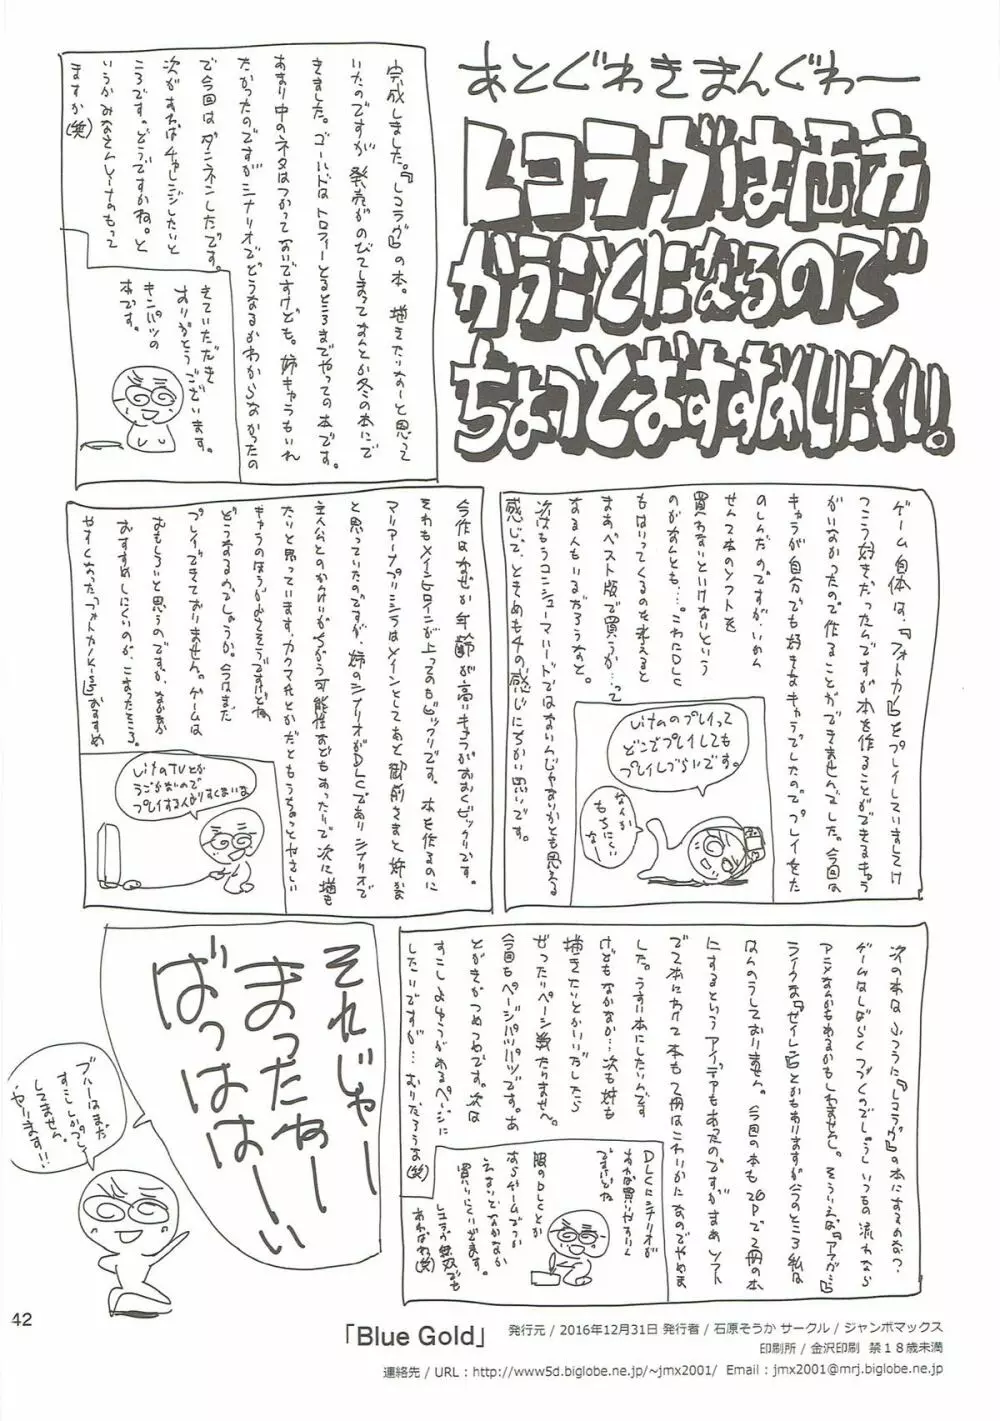 あとぐわきまんぐわー
レコラヴは両方
かうことになるので
ちょっとおすすめしにくい。
完成しました。『レコラヴ』の本。描きたいなーと思って
いたのですが 発売がのびてしまってなんとか冬の本にで
きました。ゴールドはトロフィーとるところまでやっての本です。
あまり中のネタはつかってないですけども。姉キャラもいれ
たかったのですがシナリオでどうなるかわからなかったの
で今回はダンネンしたです。
次があればチャレンジしたいと
ころです。どうですかね。と
いうかみなさんレーナのもって
ますか(笑)
さていただき
ありがとうございます。
キンパツの
本です。
ゲーム自体は、『フォトカノ』をプレイしていましてけ
っこう好きだったんですが本を作ることができるキャラ
がいなかったので作ることができませんでした。今回は
キャラが自分でも好きなキャラでしたので プレイをた
のしんだのですが、いかん
せん2本のソフトを
買わないといけないという
のがなんとも…。これにDLC
もはいってくるのを考えると
まあベスト版で買うか…って
なる人もいるだろうなと。
次はもうコンシューマハードではないんじゃないかとも思える
感じで、ときめも4の感じにちかい思いです。
Vitaのプレイって
どこでプレイしても
プレイしづらいです。
なんか
もちにくい
なー
今作はなぜか年齢が高いキャラがおおくビックリです。
それもメインヒロインが上ってのもビックリです。本を作るのに
マリアーナプリシラはメインとしてあと御前さまと姉かな
と思っていたのですが、姉のシナリオがDLCでありシナリオで
主人公とのかけいがちがう可能性などもあったりで次に描も
たりと思っています。カクマ氏とかだともうちょっとやさしい
どうなるのでしょうか。今はまだ
プレイできておりません。ゲームは
おもしろいと思うのですが、なかなか
おすすめしにくいのが、こまったところ。
VitaTVとか
うごかないので
次の本は ふつうに『レコラヴ』の本にするのかな?
ゲームはしばらくつづくのでしょうし いつもの流れなら
アニメなんかもあるかもしれませんし。
はんのうしておりません。今回の本も26Pで2冊の本
にするというアイデアもあったのですが まあソフト
でて本にわけて本も2冊はこわいかになのでやめま
した。うすい本にしたいんです
けどもなかなか…次も姉も
描きたいとかいいだしたら
ぜったいページ数たりません。
今回もページパツパツです。あ
とがきがつめつめです。次は
すこしよゆうがあるページに
したいですが…むりだろうな(笑)
DLCにシナリオが
あれば買いやすいん
ですけどね
服のDLCとか
するゲームでっか
えないとなかなか
買いにくいとです。
それじゃー
まったねー
ばっはは〜い
ブルーはまだ
すこししかプレイ
してません。
やります!!
42
「Blue Gold」
発行元 / 2016年12月31日 発行者 / 石原そうか サークル / ジャンボマックス
印刷所 / 金沢印刷 禁18歳未満
連絡先 / URL : http://www5d.biglobe.ne.jp/~jmx2001/ Email : jmx2001@mrj.biglobe.ne.jp